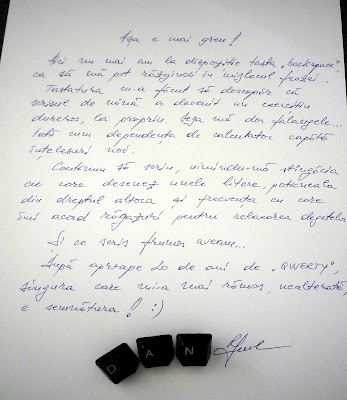 Așa e mai greu!
Aci nu mai am la dispoziție tasta „backspace”,
ca să mă pot răzgîndi în mijlocul frazei...
Tastatura m-a făcut să descopăr că
scrisul de mînă a devenit un exercițiu
dureros, la propriu. Deja mă dor falangele...
Iată cum dependența de calculator capătă
înțelesuri noi.
Continui să scriu, uimindu-mă stîngăcia
cu care desenez unele litere, poticneala
din dreptul altora și frecvența cu care
îmi acord răgazuri pentru relaxarea degetelor.
Și ce scris frumos aveam...
După aproape 20 de ani de „QWERTY”,
singura care mi-a mai rămas, nealterată,
e semnătura! :)
D A N